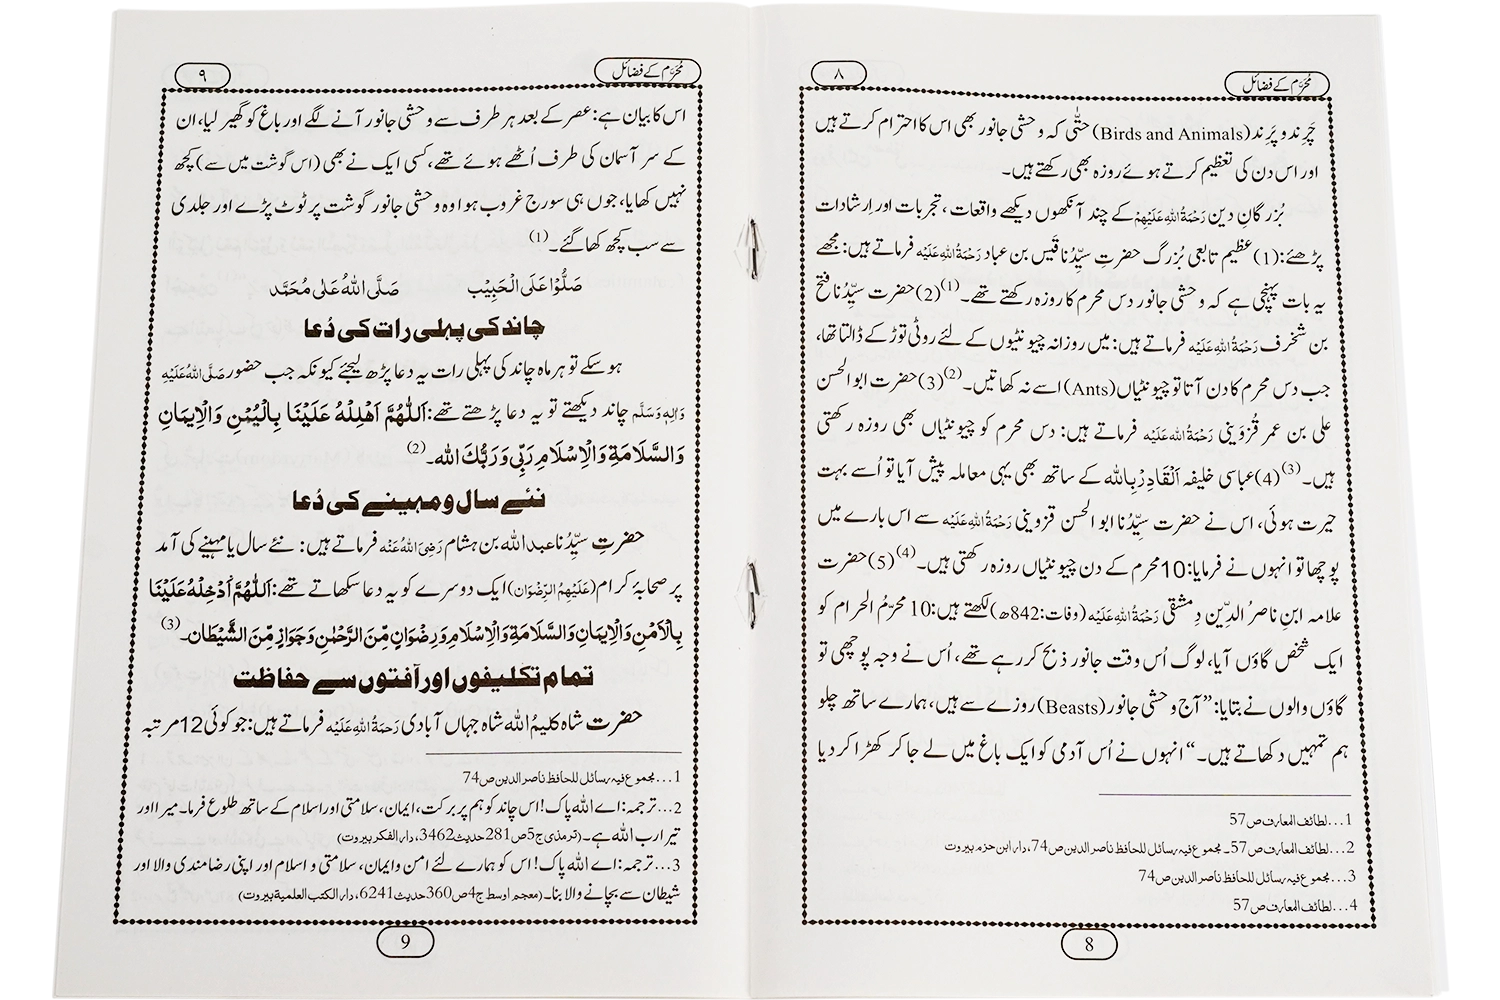 مُحَرَّم کے فضائل
۸
چَرِند و پَرِند (Birds and Animals) حتّٰی کہ وحشی جانور بھی اس کا احترام کرتے ہیں
اور اس دن کی تعظیم کرتے ہوئے روزہ بھی رکھتے ہیں۔
بُزرگانِ دین رَحْمَۃُ اللہِ عَلَیْہِمْ کے چند آنکھوں دیکھے واقعات، تجربات اور اِرشادات
پڑھئے: (1) عظیم تابعی بُزرگ حضرتِ سیِّدُنا قَیس بن عباد رَحْمَۃُ اللہِ عَلَیْہ فرماتے ہیں: مجھے
یہ بات پہنچی ہے کہ وحشی جانور دس محرم کا روزہ رکھتے تھے۔(1) (2) حضرت سیِّدُنا فتح
بن شخرف رَحْمَۃُ اللہِ عَلَیْہ فرماتے ہیں: میں روزانہ چیونٹیوں کے لئے روٹی توڑ کے ڈالتا تھا،
جب دس محرم کا دن آتا تو چیونٹیاں (Ants) اسے نہ کھاتیں۔(2) (3) حضرت ابو الحسن
علی بن عمر قُزوینی رَحْمَۃُ اللہِ عَلَیْہ فرماتے ہیں: دس محرم کو چیونٹیاں بھی روزہ رکھتی
ہیں۔(3) (4) عباسی خلیفہ اَلْقَادِرْ بِاللہ کے ساتھ بھی یہی معاملہ پیش آیا تو اُسے بہت
حیرت ہوئی، اس نے حضرت سیِّدُنا ابو الحسن قزوینی رَحْمَۃُ اللہِ عَلَیْہ سے اس بارے میں
پوچھا تو انہوں نے فرمایا: 10 محرم کے دن چیونٹیاں روزہ رکھتی ہیں۔(4) (5) حضرت
علامہ ابنِ ناصرُ الدِّین دِمشقی رَحْمَۃُ اللہِ عَلَیْہ (وفات: 842ھ) لکھتے ہیں: 10 محرّمُ الحرام کو
ایک شخص گاؤں آیا، لوگ اُس وقت جانور ذبح کر رہے تھے، اُس نے وجہ پوچھی تو
گاؤں والوں نے بتایا: ”آج وحشی جانور (Beasts) روزے سے ہیں، ہمارے ساتھ چلو
ہم تمہیں دکھاتے ہیں۔“ انہوں نے اُس آدمی کو ایک باغ میں لے جا کر کھڑا کر دیا
1... لطائف المعارف ص 57
2... لطائف المعارف ص 57۔ مجموع فیہ رسائل للحافظ ناصر الدین ص 74، دار ابن حزم بیروت
3... مجموع فیہ رسائل للحافظ ناصر الدین ص 74
4... لطائف المعارف ص 57
8
مُحَرَّم کے فضائل
۹
اس کا بیان ہے: عصر کے بعد ہر طرف سے وحشی جانور آنے لگے اور باغ کو گھیر لیا، ان
کے سر آسمان کی طرف اُٹھے ہوئے تھے، کسی ایک نے بھی (اس گوشت میں سے) کچھ
نہیں کھایا، جوں ہی سورج غروب ہوا وہ وحشی جانور گوشت پر ٹوٹ پڑے اور جلدی
سے سب کچھ کھا گئے۔(1)
صَلُّوْا عَلَی الْحَبِیْب صَلَّی اللہُ عَلٰی مُحَمَّد
چاند کی پہلی رات کی دُعا
ہو سکے تو ہر ماہ چاند کی پہلی رات یہ دعا پڑھ لیجئے کیونکہ جب حضور صَلَّی اللہُ عَلَیْہِ
وَاٰلِہٖ وَسَلَّم چاند دیکھتے تو یہ دعا پڑھتے تھے: اَللّٰهُمَّ اَهْلِلْهُ عَلَيْنَا بِالْيُمْنِ وَالْاِيمَانِ
وَالسَّلَامَةِ وَالْاِسْلَامِ رَبِّيْ وَرَبُّكَ اللہ۔(2)
نئے سال و مہینے کی دُعا
حضرتِ سیِّدُنا عبد اللہ بن ہشام رَضِیَ اللہُ عَنْہ فرماتے ہیں: نئے سال یا مہینے کی آمد
پر صحابۂ کرام (عَلَیْہِمُ الرِّضْوَان) ایک دوسرے کو یہ دعا سکھاتے تھے: اَللّٰهُمَّ اَدْخِلْهُ عَلَيْنَا
بِالْاَمْنِ وَالْاِيمَانِ وَالسَّلَامَةِ وَالْاِسْلَامِ وَرِضْوَانٍ مِّنَ الرَّحْمٰنِ وَجَوَازٍ مِّنَ الشَّيْطَانِ۔(3)
تمام تکلیفوں اور آفتوں سے حفاظت
حضرت شاہ کلیمُ اللہ شاہ جہاں آبادی رَحْمَۃُ اللہِ عَلَیْہ فرماتے ہیں: جو کوئی 12 مرتبہ
1... مجموع فیہ رسائل للحافظ ناصر الدین ص 74
2... ترجمہ: اے اللہ پاک! اس چاند کو ہم پر برکت، ایمان، سلامتی اور اسلام کے ساتھ طلوع فرما۔ میرا اور
تیرا رب اللہ ہے۔ (ترمذی ج 5 ص 281 حدیث 3462، دار الفکر بیروت)
3... ترجمہ: اے اللہ پاک! اس کو ہمارے لئے امن و ایمان، سلامتی و اسلام اور اپنی رضامندی والا اور
شیطان سے بچانے والا بنا۔ (معجم اوسط ج 4 ص 360 حدیث 6241، دار الکتب العلمیۃ بیروت)
9